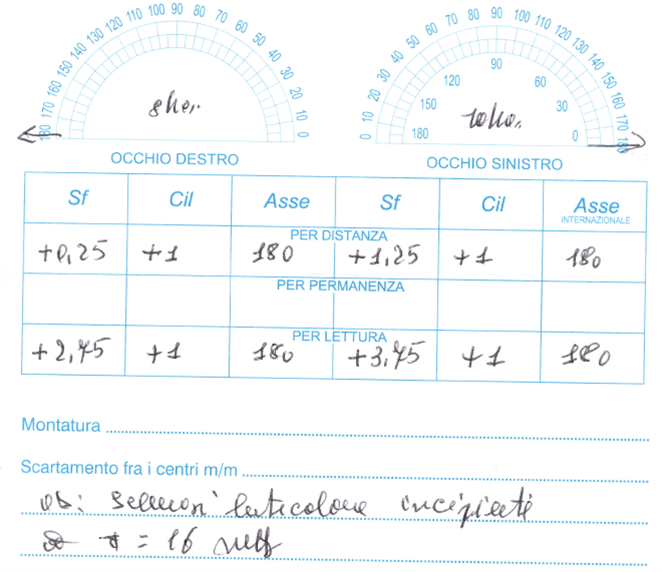 180 170 160 150 140 130 120 110 100 90 80 70 60 50 40 30 20 10 0
0 10 20 30 40 50 60 70 80 90 100 110 120 130 140 150 160 170 180
180 150 120 90 60 30 0
OCCHIO DESTRO OCCHIO SINISTRO
Sf Cil Asse Sf Cil Asse
INTERNAZIONALE
PER DISTANZA
+0,25 +1 180 +1,25 +1 180
PER PERMANENZA
PER LETTURA
+2,75 +1 180 +3,75 +1 180
Montatura
Scartamento fra i centri m/m
lenticolare incipiente
= 16